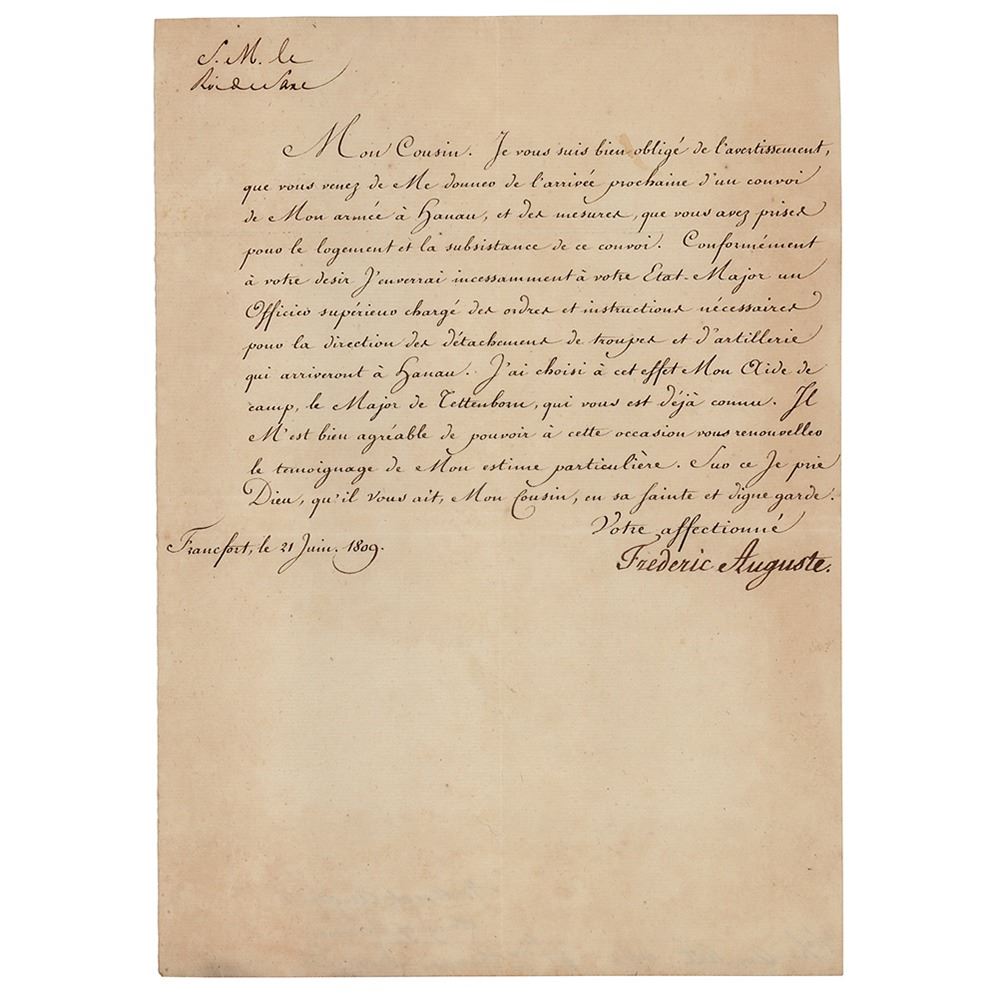 S. M. le
Roi de Saxe
Mon Cousin. Je vous suis bien obligé de l'avertissement,
que vous venez de Me donner de l'arrivée prochaine d'un convoi
de Mon armée à Hanau, et des mesures, que vous avez prises
pour le logement et la subsistance de ce convoi. Conformément
à votre desir J'enverrai incessamment à votre Etat-Major un
Officier supérieur chargé des ordres et instructions nécessaires
pour la direction des détachemens de troupes et d'artillerie
qui arriveront à Hanau. J'ai choisi à cet effet Mon Aide de
camp, le Major de Tettenborn, qui vous est déjà connu. Il
M'est bien agréable de pouvoir à cette occasion vous renouveller
le temoignage de Mon estime particulière. Sur ce Je prie
Dieu, qu'il Vous ait, Mon Cousin, en sa sainte et digne garde.
Votre affectionné
Francfort, le 21 Juin. 1809.
Frédéric Auguste.